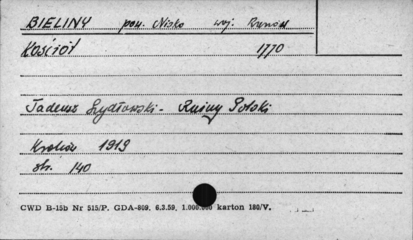 BIELINY pow. Nisko woj. Rzeszów
Kościół 1770
Tadeusz Szydłowski - Ruiny Polski
Kraków 1919
str. 140
CWD B-15b Nr 515/P. GDA-809. 6.3.59. 1.000.000 karton 180/V.